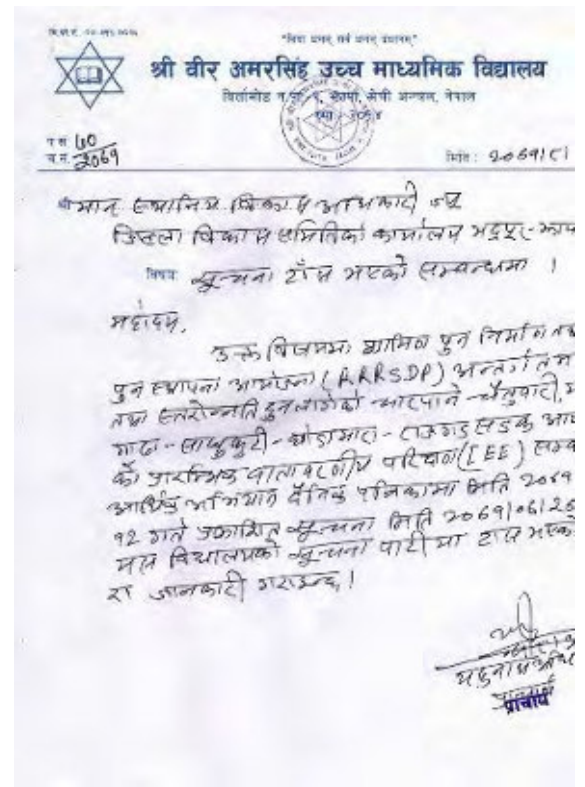 "विद्या धनम् सर्व धनम् प्रधानम्"
श्री वीर अमरसिंह उच्च माध्यमिक विद्यालय
विर्तामोड न.पा. झापा, मेची अञ्चल, नेपाल
प.स. 60
च.न. 2069
मिति: 2069।८।
श्रीमान् स्थानिय विकास अधिकारी ज्यू
जिल्ला विकास समितिको कार्यालय भद्रपुर-झापा
विषय: सूचना टाँस भएको सम्बन्धमा ।
महोदय,
उक्त विषयमा ग्रामिण पुन निर्माण तथा
पुन स्थापना आयोजना (RRRSDP) अन्तर्गत
तथा स्तरोन्नति हुन लागेको चारपाने-चैतुबारी,
सडक
को प्रारम्भिक वातावरणीय परिक्षण (IEE)
आर्थिक अभियान दैनिक पत्रिकामा मिति 2069
१२ गते प्रकाशित सूचना मिति 2069।06।26
यस विद्यालयको सूचना पाटी मा टाँस भएको
रा जानकारी गराइन्छ।
प्राचार्य